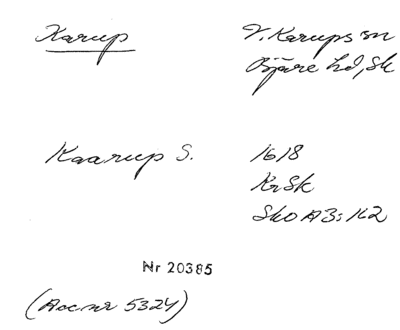 Karup
V. Karups sn
Bjäre hd, Sk
Kaarup S.
1618
KrSk
Sko A3:162
Nr 20385
(Acc.nr 5324)